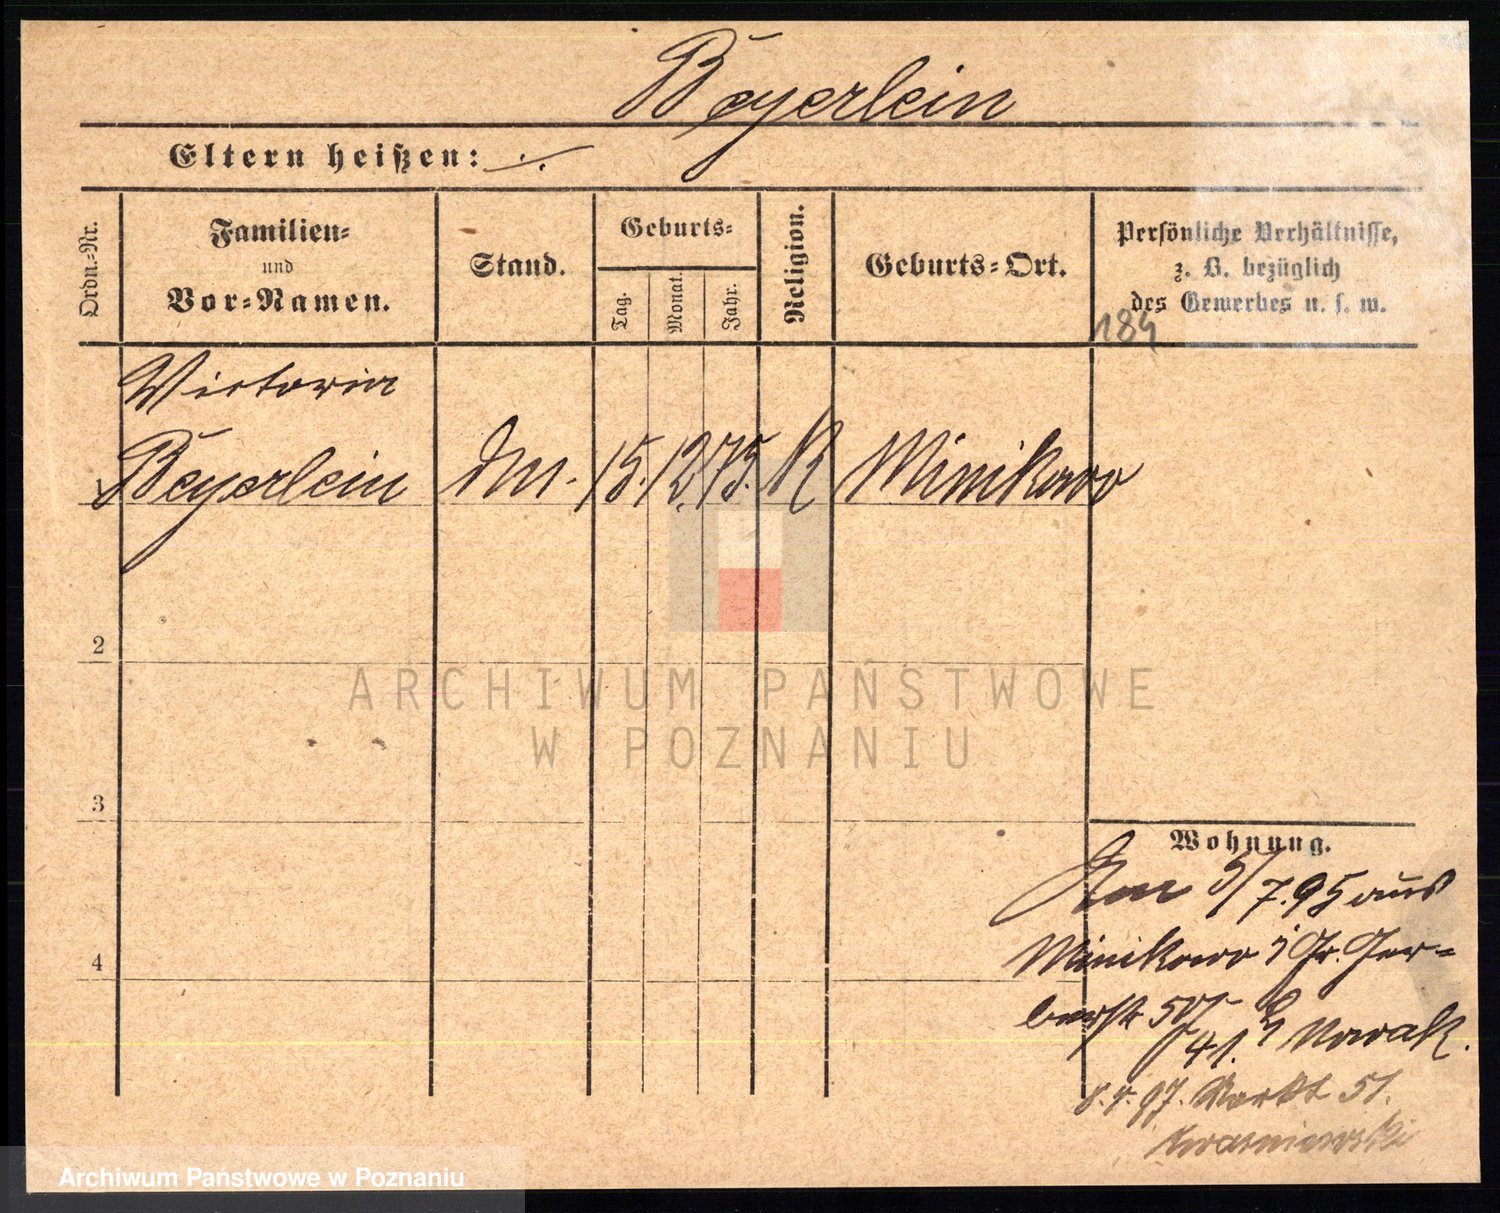 Beyerlein
Eltern heißen: ./.
Ordn.-Nr.
Familien-
und
Vor-Namen.
Stand.
Geburts-
Tag.
Monat.
Jahr.
Religion.
Geburts-Ort.
Persönliche Verhältnisse,
z. B. bezüglich
des Gewerbes u. s. w.
184
Victoria
1 Beyerlein Dm. 15. 12. 75. K Minikowo
2
3
4
Wohnung.
5/7.95 aus
Minikowo i Gr. Ger-
berstr 50/
41. Nowak.
97. Markt 51.
Kwasniewski
ARCHIWUM PAŃSTWOWE
W POZNANIU
Archiwum Państwowe w Poznaniu